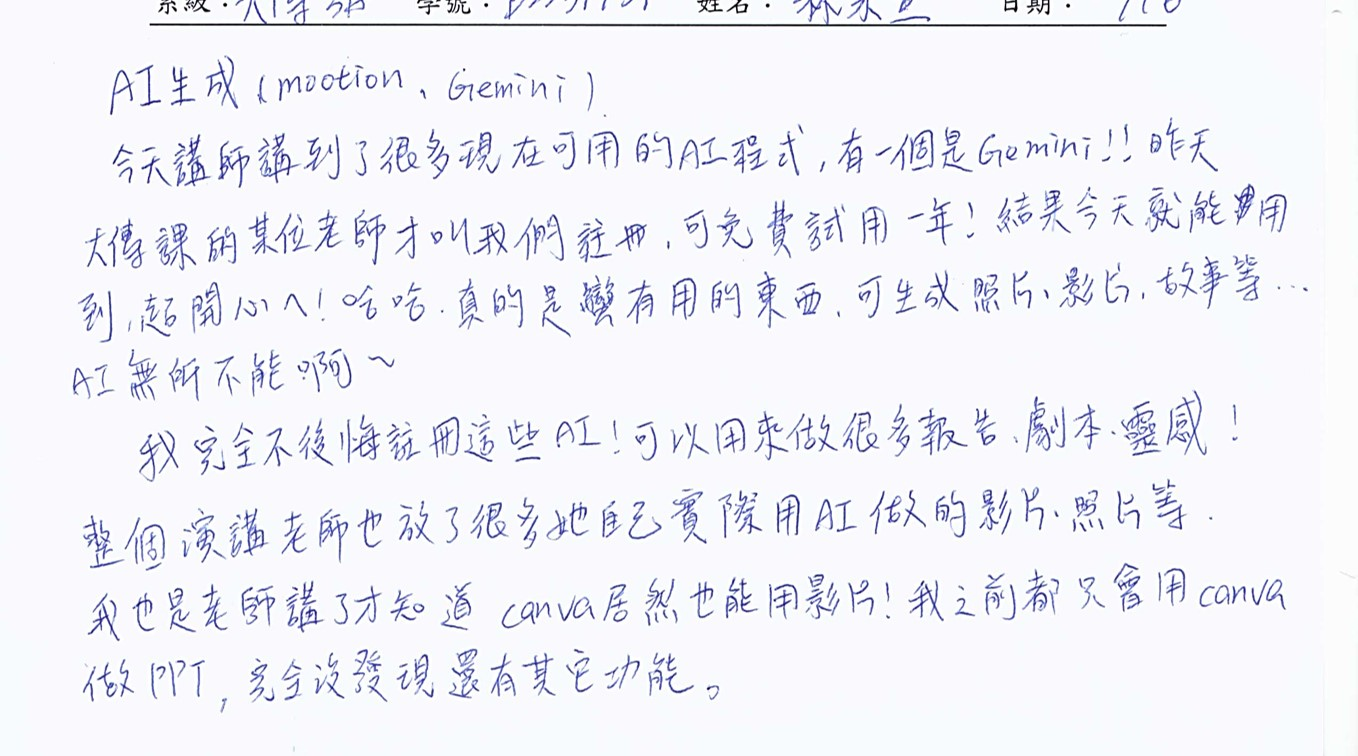 系級： 學號： 姓名： 日期：
AI生成（mootion、Gemini）
今天講師講到了很多現在可用的AI程式，有一個是Gemini!! 昨天
大傳課的某位老師才叫我們註冊，可免費試用一年！結果今天就能用
到，超開心ㄟ！哈哈．真的是蠻有用的東西．可生成照片、影片、故事等…
AI無所不能啊～
我完全不後悔註冊這些AI！可以用來做很多報告、劇本、靈感！
整個演講老師也放了很多她自己實際用AI做的影片、照片等．
我也是老師講了才知道canva居然也能用影片！我之前都只會用canva
做PPT，完全沒發現還有其它功能。